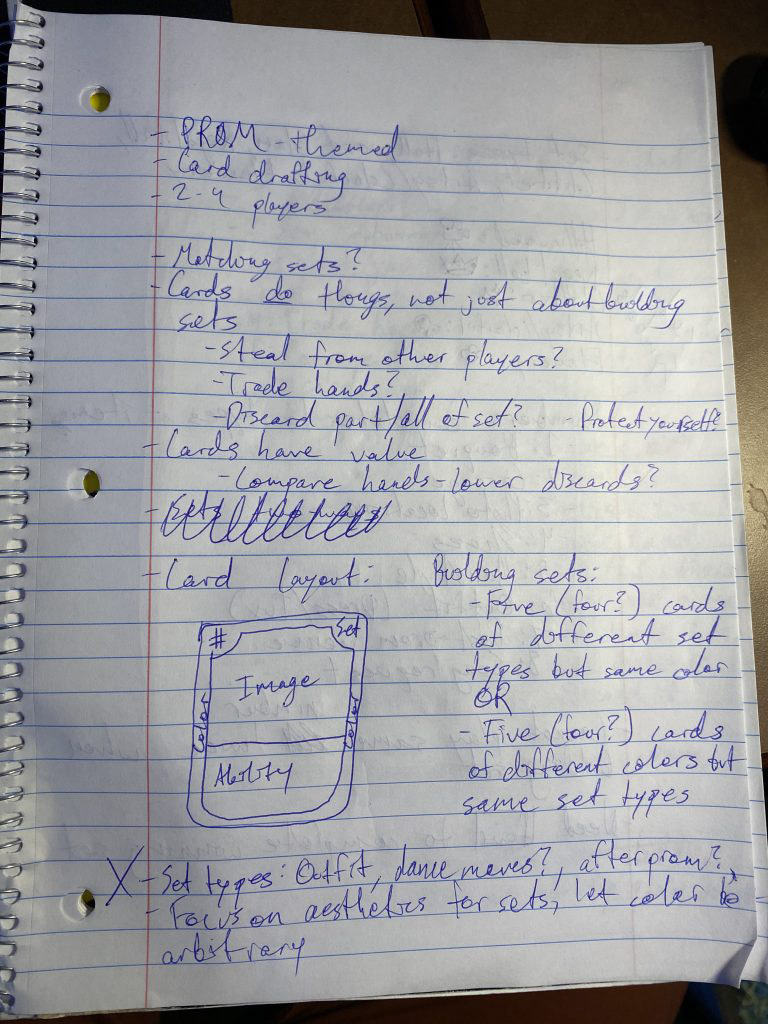 - PROM - themed
- Card drafting
- 2-4 players
- Matching sets?
- Cards do things, not just about building
sets
- Steal from other players?
- Trade hands?
- Discard part/all of set? - Protect yourself?
- Cards have value
- Compare hands - lower discards?
- Sets
- Card layout:
# Set
Image
Color Color
Ability
Building sets:
- Five (four?) cards
of different set
types but same color
OR
- Five (four?) cards
of different colors but
same set types
X - Set types: Outfit, dance moves?, afterprom?,
- Focus on aesthetics for sets, let color be
arbitrary